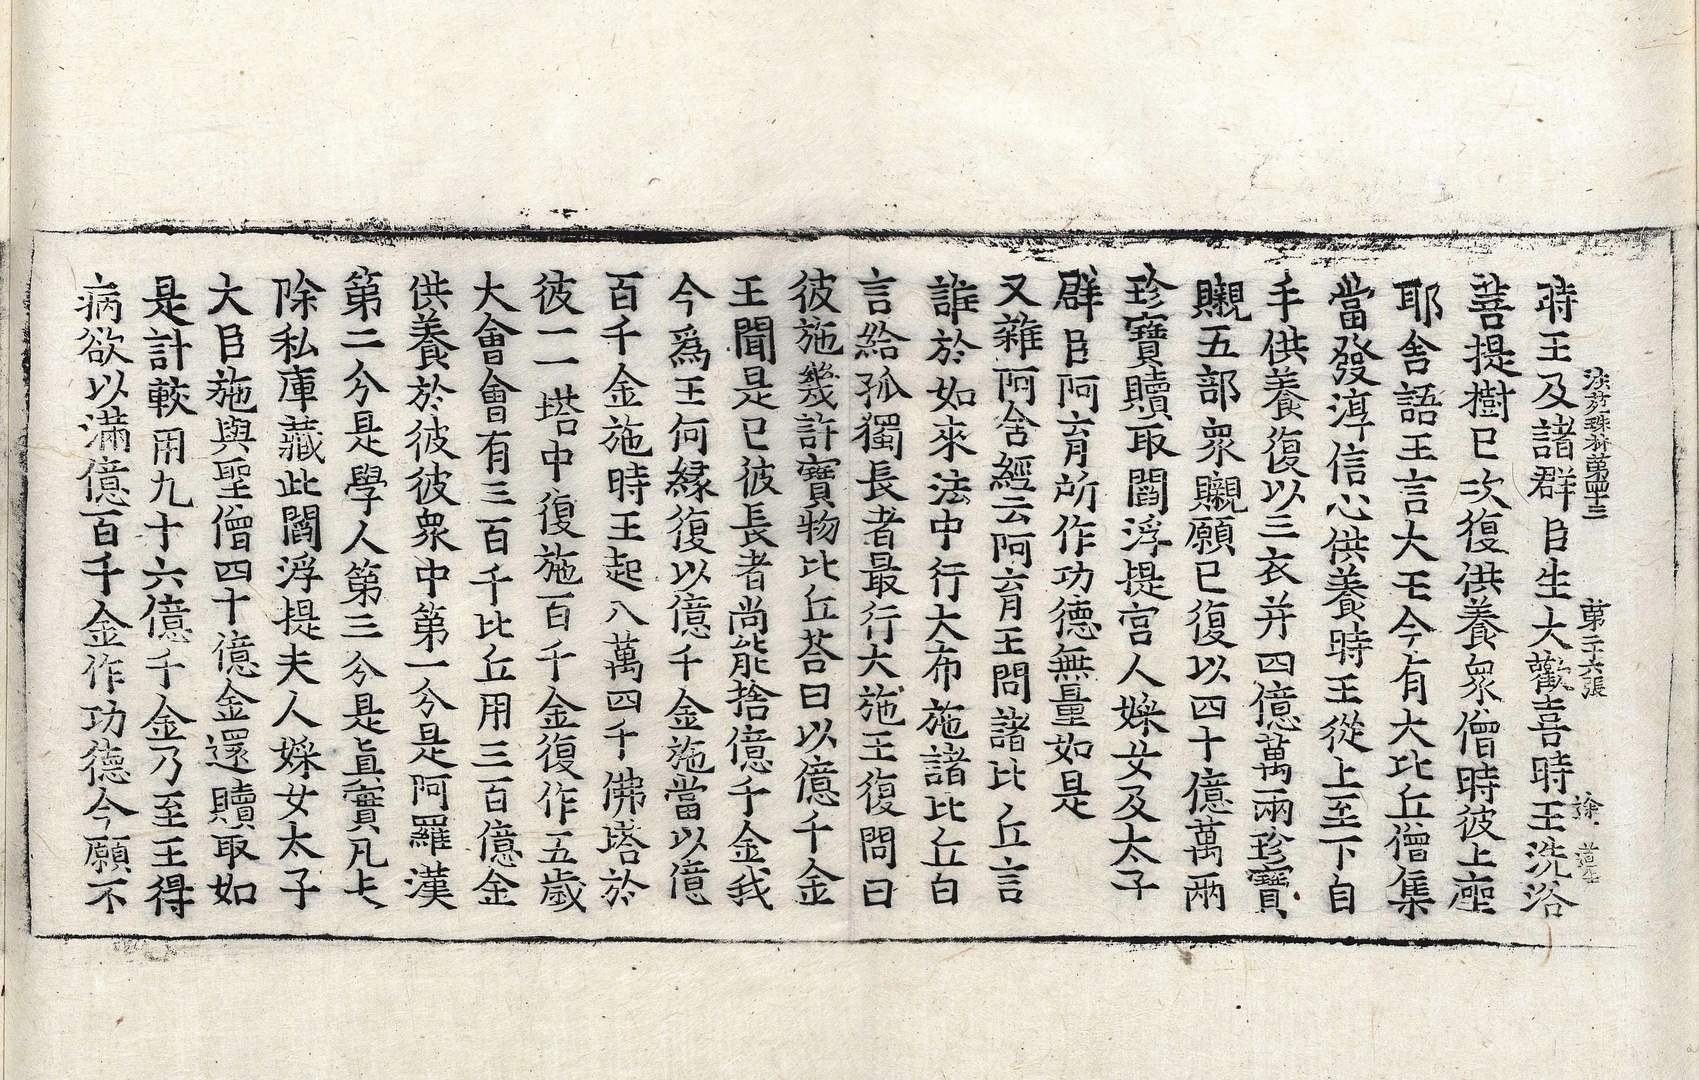 法苑珠林第四十三　第二十六張　塗
時王及諸群臣生大歡喜時王洗浴
菩提樹已次復供養衆僧時彼上座
耶舍語王言大王今有大比丘僧集
當發淳信心供養時王從上至下自
手供養復以三衣并四億萬兩珍寶
䞋五部衆䞋願已復以四十億萬兩
珍寶贖取閻浮提宮人婇女及太子
群臣阿育所作功德無量如是
又雜阿含經云阿育王問諸比丘言
誰於如來法中行大布施諸比丘白
言給孤獨長者最行大施王復問曰
彼施幾許寶物比丘荅曰以億千金
王聞是已彼長者尚能捨億千金我
今爲王何縁復以億千金施當以億
百千金施時王起八萬四千佛塔於
彼一一塔中復施百千金復作五歲
大會會有三百千比丘用三百億金
供養於彼彼衆中第一分是阿羅漢
第二分是學人第三分是眞實凡夫
除私庫藏此閻浮提夫人婇女太子
大臣施與聖僧四十億金還贖取如
是計較用九十六億千金乃至王得
病欲以滿億百千金作功德今願不